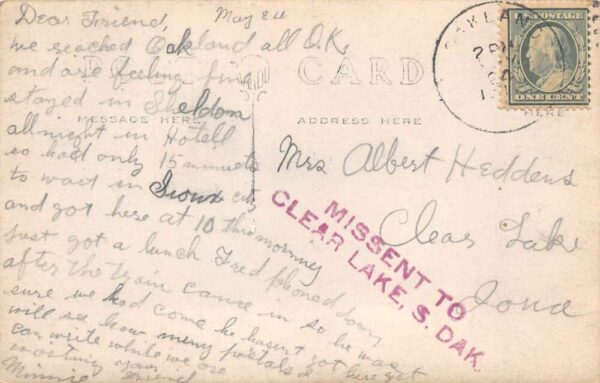 Dear Friend, May 24
we reached Oakland all O.K.
and are feeling fine
stayed in Sheldon
all night in Hotell
so had only 15 minuets
to wact in Sioux city
and got here at 10 this morning
just got a lunch Fred phoned down
after the train came in so he was
sure we had come he hasent got here yet
will see how meny postals I
can write while we are
waiting your
Minnie Friend
POST CARD
MESSAGE HERE
ADDRESS HERE
Mrs Albert Heddens
Clear Lake
Iowa
MISSENT TO
CLEAR LAKE, S. DAK.
OAKLAND
2 PM
U.S. POSTAGE
ONE CENT
HERE